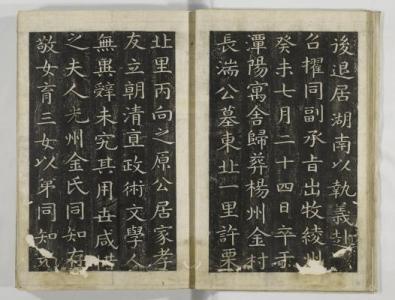 後退居湖南以執義赴
召擢同副承旨出牧綾州
癸未七月二十四日卒于
潭陽寓舍歸葬楊州金村
長湍公墓東北一里許栗
北里丙向之原公居家孝
友立朝清直政術文學人
無異辭未究其用世咸
之夫人光州金氏同知存
敬女育三女以弟同知